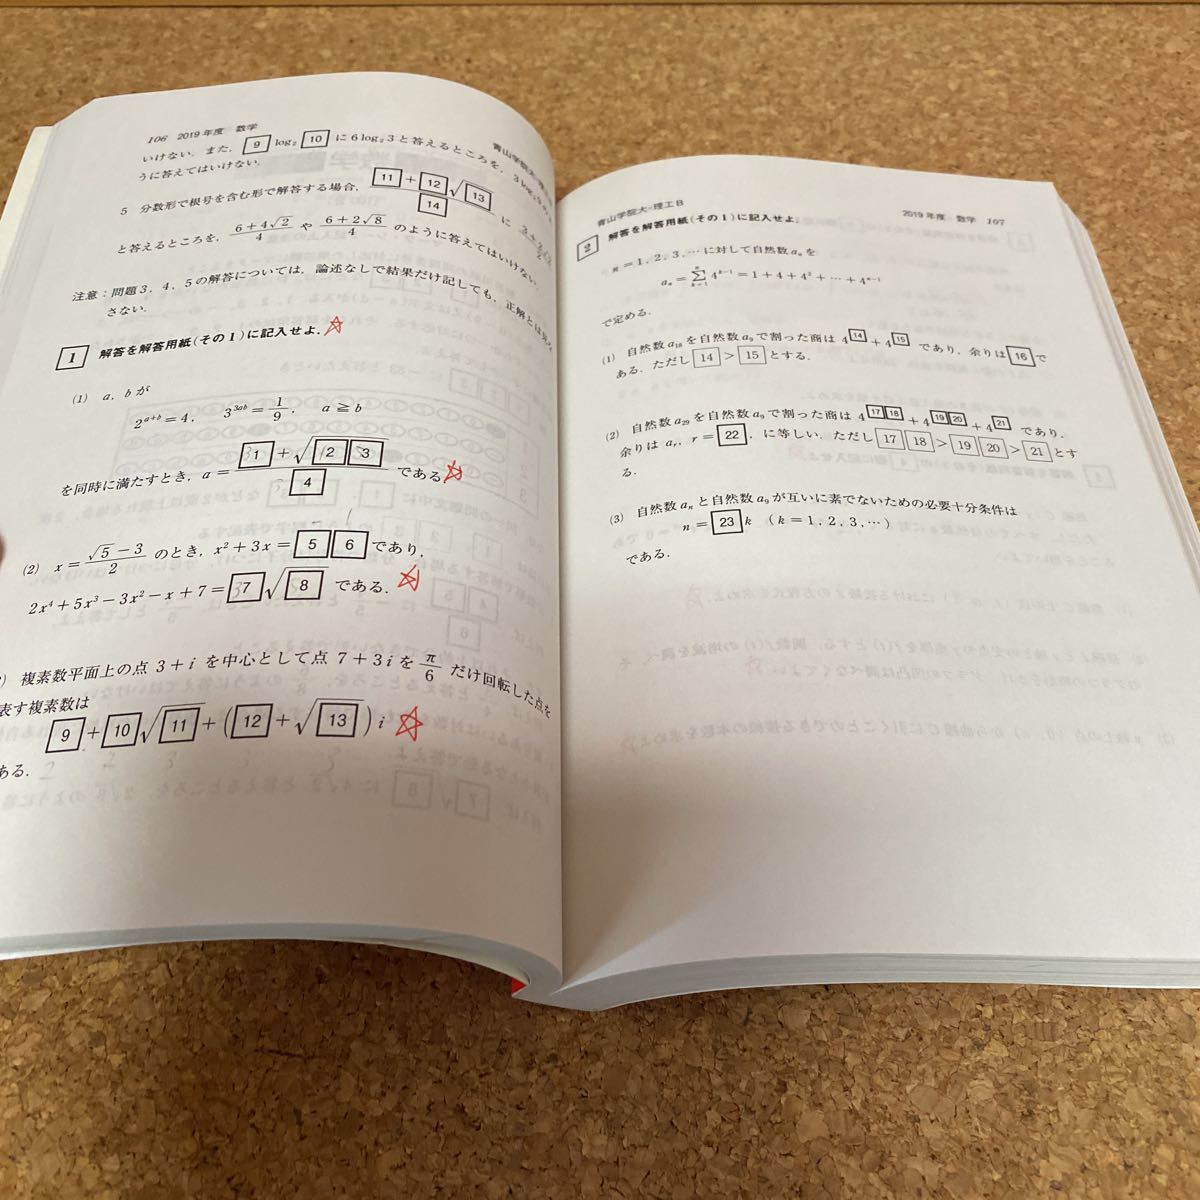 106 2019年度 数学
青山学院大-理工
いけない. また, 9 log₂ 10 に 6 log₂ 3 と答えるところを, 3 log₂
うに答えてはいけない.
5 分数形で根号を含む形で解答する場合, (11 + 12√13)/14 に
と答えるところを, (6+4√2)/4 や (6+2√8)/4 のように答えてはいけない.
注意:問題3, 4, 5の解答については, 論述なしで結果だけ記しても, 正解とは見な
さない.
1 解答を解答用紙(その1)に記入せよ. ☆
(1) a, b が
2^(a+b)=4, 3^(3ab)=1/9, a≧b
を同時に満たすとき, a=(1+√(2 3))/4 である ☆
(2) x=(√5−3)/2 のとき, x²+3x=5 6 であり,
2x⁴+5x³−3x²−x+7=7√8 である. ☆
) 複素数平面上の点 3+i を中心として点 7+3i を π/6 だけ回転した点を
表す複素数は
9+10√11+(12+√13)i ☆
ある.
2 2 3 3 3
青山学院大-理工B
2019年度 数学 107
2 解答を解答用紙(その1)に記入せよ.
n=1, 2, 3, …に対して自然数 aₙ を
aₙ=Σ(k=1, n) 4^(k−1)=1+4+4²+…+4^(n−1)
で定める.
(1) 自然数 a₁₈ を自然数 a₉ で割った商は 4^14+4^15 であり, 余りは 16 で
ある. ただし 14 > 15 とする.
(2) 自然数 a₂₉ を自然数 a₉ で割った商は 4^(17 18)+4^(19 20)+4^21 であり,
余りは aᵣ, r=22, に等しい. ただし 17 18 > 19 20 > 21 とす
る.
(3) 自然数 aₙ と自然数 a₉ が互いに素でないための必要十分条件は
n=23 k (k=1, 2, 3, …)
である.